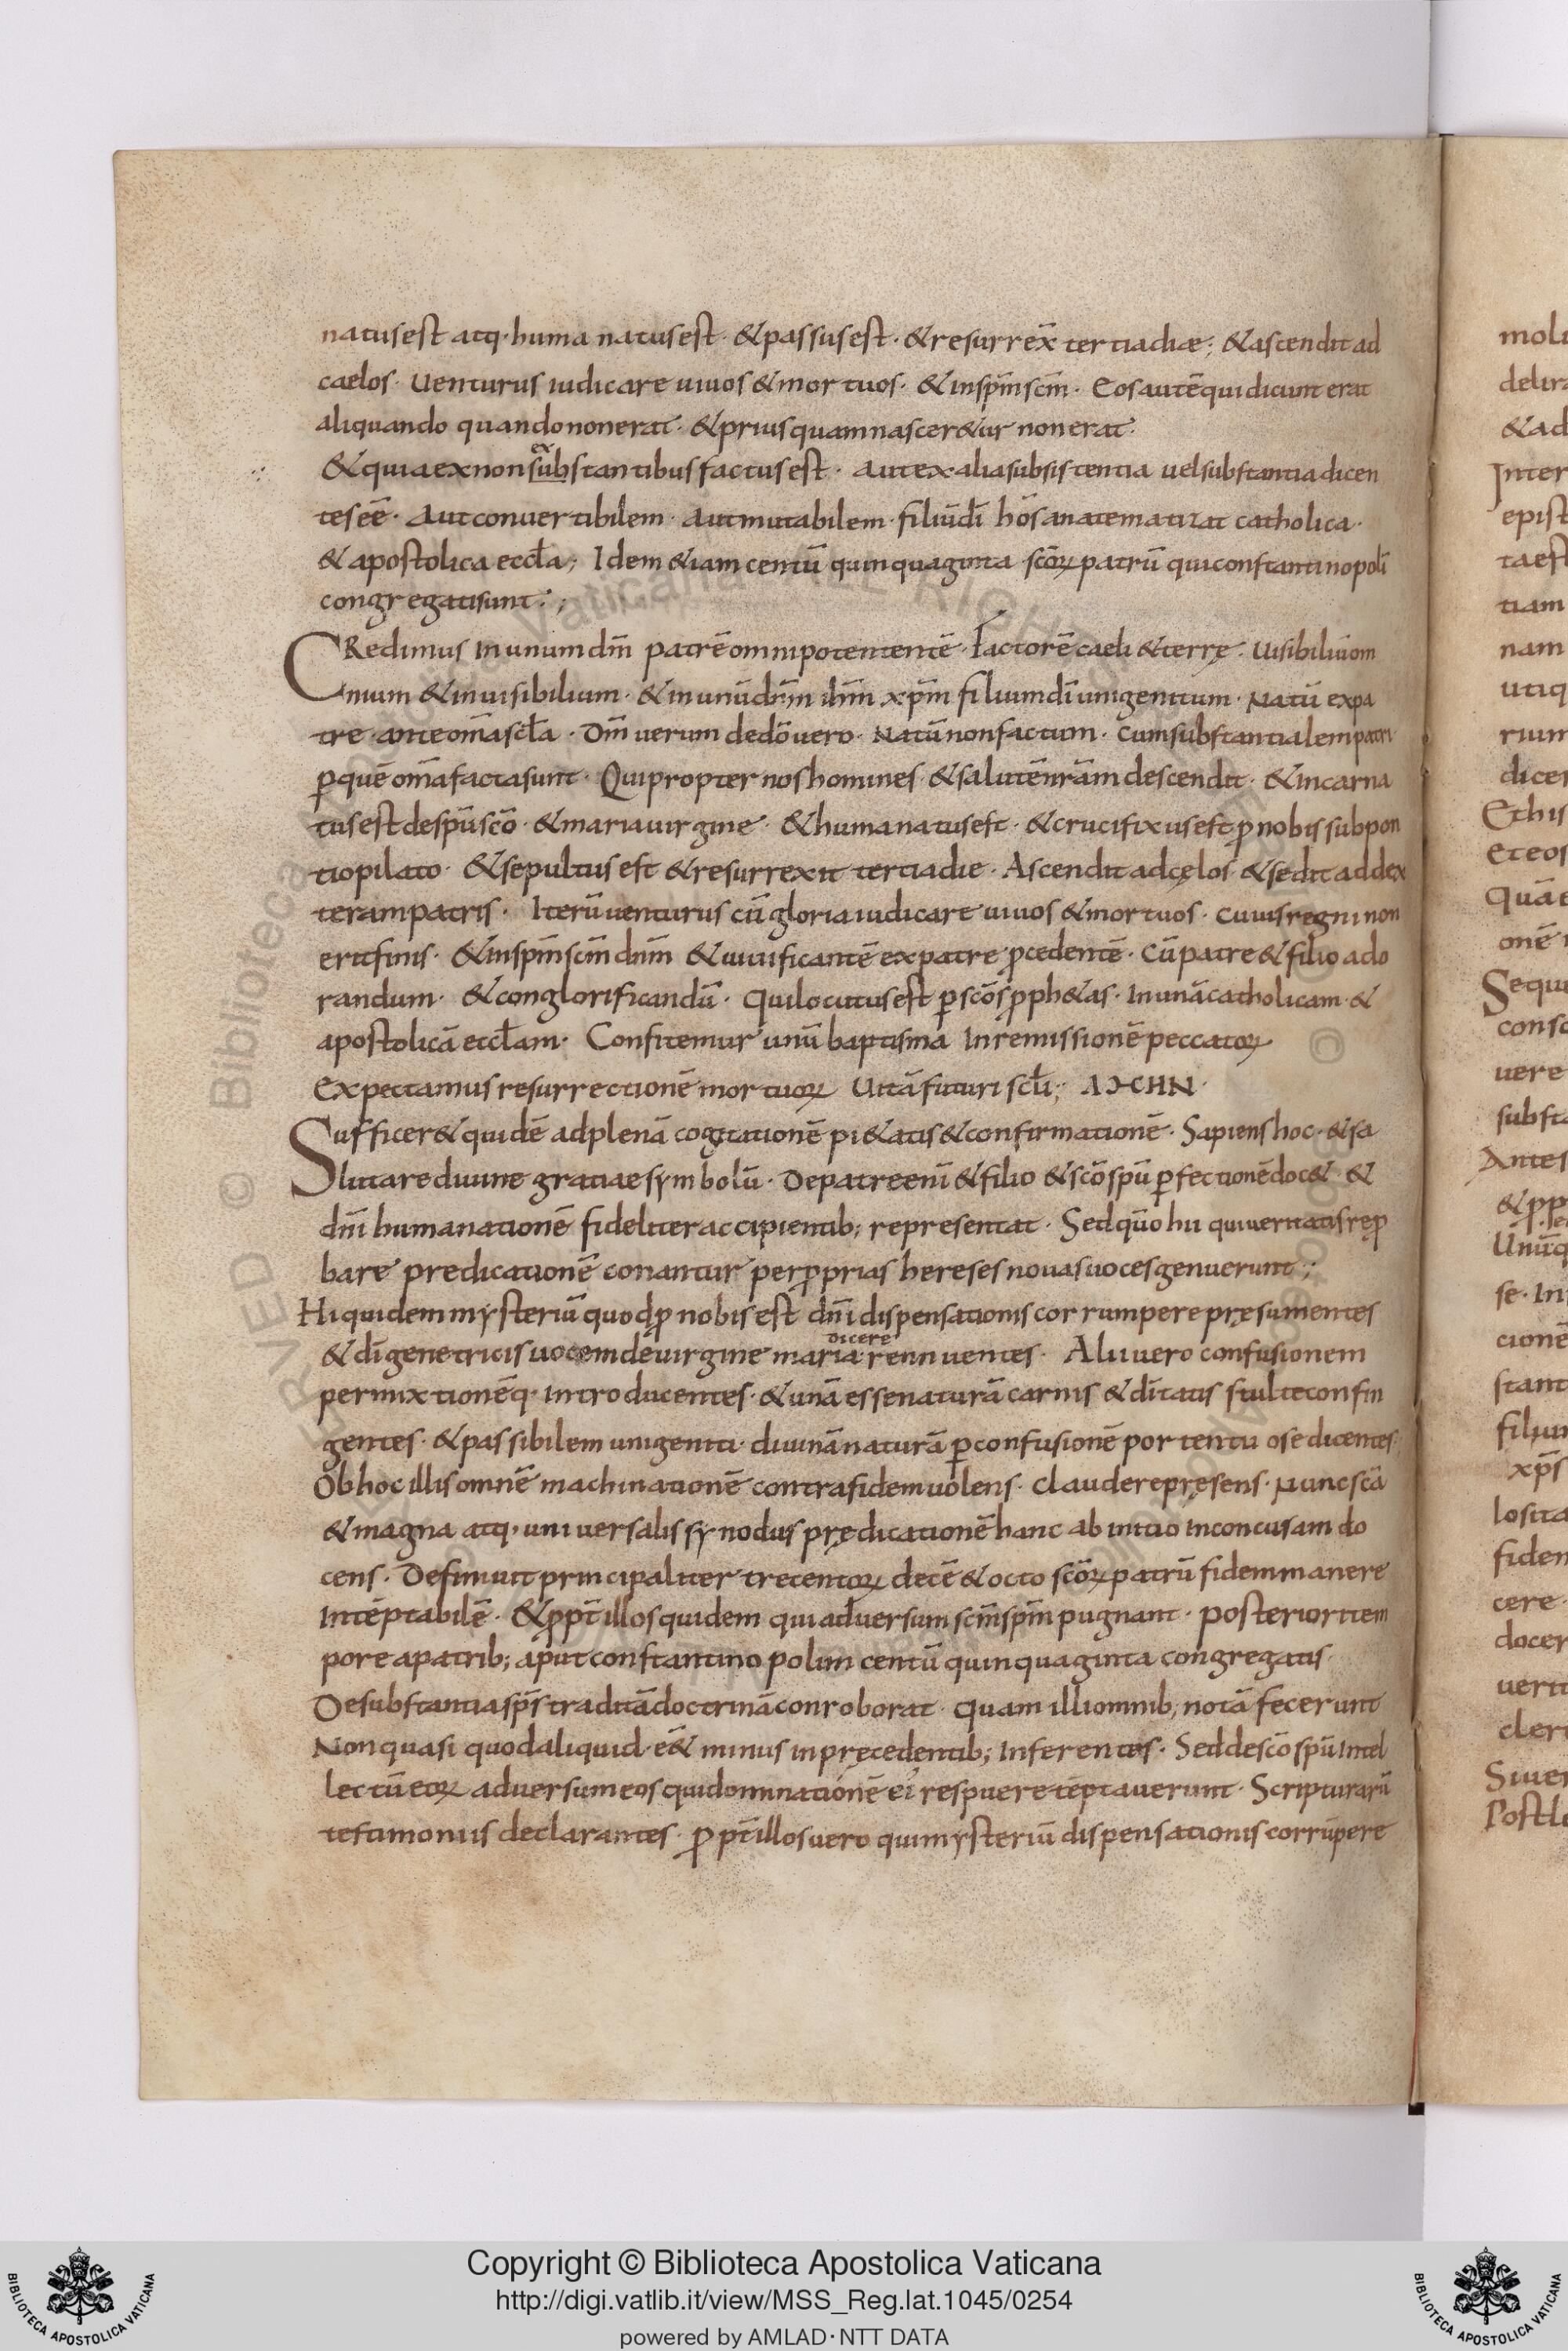 natus est atq· huma natus est· & passus est· & resurrex̄ tertia diæ; & ascendit ad
caelos· Uenturus iudicare uiuos & mortuos· & in sp̄m sc̄m· Eos autē qui dicunt erat
aliquando quando non erat· & prius quam nascer&ur non erat·
ex
& quia ex non substantibus factus est· aut ex alia subsistentia uel substantia dicen
tes eē· Aut conuertibilem· aut mutabilem· filiū dī hos anatematizat catholica·
& apostolica eccła; Idem &iam centū quinquaginta scōꝝ patrū qui constantinopolī
congregati sunt·;
CRedimus In unum dm̄ patrē omnipotententē· Factorē caeli & terrę· Uisibiliū om
nium & inuisibilium· & in unū dn̄m ih̄m xp̄m filium dī unigenitum· Natū ex pa
tre ante om̄a scl̄a· Dm̄ uerum de dō uero· Natū non factum· Cum substantialem patri
ꝑ quē om̄a facta sunt· Qui propter nos homines· & salutē nr̄am descendit· & incarna
tus est de sp̄u scō· & maria uirgine· & humanatus est· & crucifixus est ꝓ nobis sub pon
tio pilato· & sepultus est & resurrexit tertia die· Ascendit ad cęlos· & sedit ad dex
teram patris· Iterū uenturus cū gloria iudicare uiuos & mortuos· Cuius regni non
erit finis· & in sp̄m sc̄m dn̄m & uiuificantē ex patre ꝓcedentē· Cū patre & filio ado
randum· & conglorificandū· Qui locutus est ꝑ scōs ꝓph&as· In unā catholicam· &
apostolicā eccłam· Confitemur unū baptisma In remissionē peccatoꝝ
Expectamus resurrectionē mortuoꝝ Uitā futuri scl̄i; ΑΜΗΝ·
Sufficer& quidē ad plenā cogitationē pi&atis & confirmationē· Sapiens hoc· & sa
lutare diuine gratiae symbolū· De patre enī & filio & scō sp̄u ꝑfectionē doc& &
dn̄i humanationē fideliter accipientib; representat· Sed quo hii qui ueritatis reꝓ
bare predicationē conantur per ꝓprias hereses nouas uoces genuerunt;
Hi quidem mysteriū quod ꝓ nobis est dn̄i dispensationis corrumpere pręsumentes
dicere
& dī genetricis uocem de uirgine maria· rennuentes· Alii uero confusionem
permixtionēq· introducentes· & unā esse naturā carnis & dītatis stulte confin
gentes· & passibilem unigeniti· diuinā naturā ꝑ confusionē portentuose dicentes·
Ob hoc illis omnē machinationē contra fidem uolens· Claudere pręsens· Nunc scā
& magna atq· uniuersalis synodus prędicationē hanc ab initio Inconcusam do
cens· Definiuit principaliter trecentoꝝ decē & octo scōꝝ patrū fidem manere
Intēptabilē· & ꝓpt̄ illos quidem qui aduersum sc̄m sp̄m pugnant· posteriori tem
pore a patrib; aput constantinopolim centū quinquaginta congregatis·
De substantia sp̄s traditā doctrinā conroborat· Quam illi omnib; notā fecerunt
Non quasi quod aliquid· e&̄ minus in pręcedentib; Inferentes· Sed de scō sp̄u Intel
lectū eoꝝ aduersum eos qui dominationē ei respuere tēptauerunt· Scripturarū
testimoniis declarantes· ꝓpt̄ illos uero qui mysteriū dispensationis corrūpere
Copyright © Biblioteca Apostolica Vaticana
http://digi.vatlib.it/view/MSS_Reg.lat.1045/0254
powered by AMLAD·NTT DATA
BIBLIOTECA APOSTOLICA VATICANA
BIBLIOTECA APOSTOLICA VATICANA